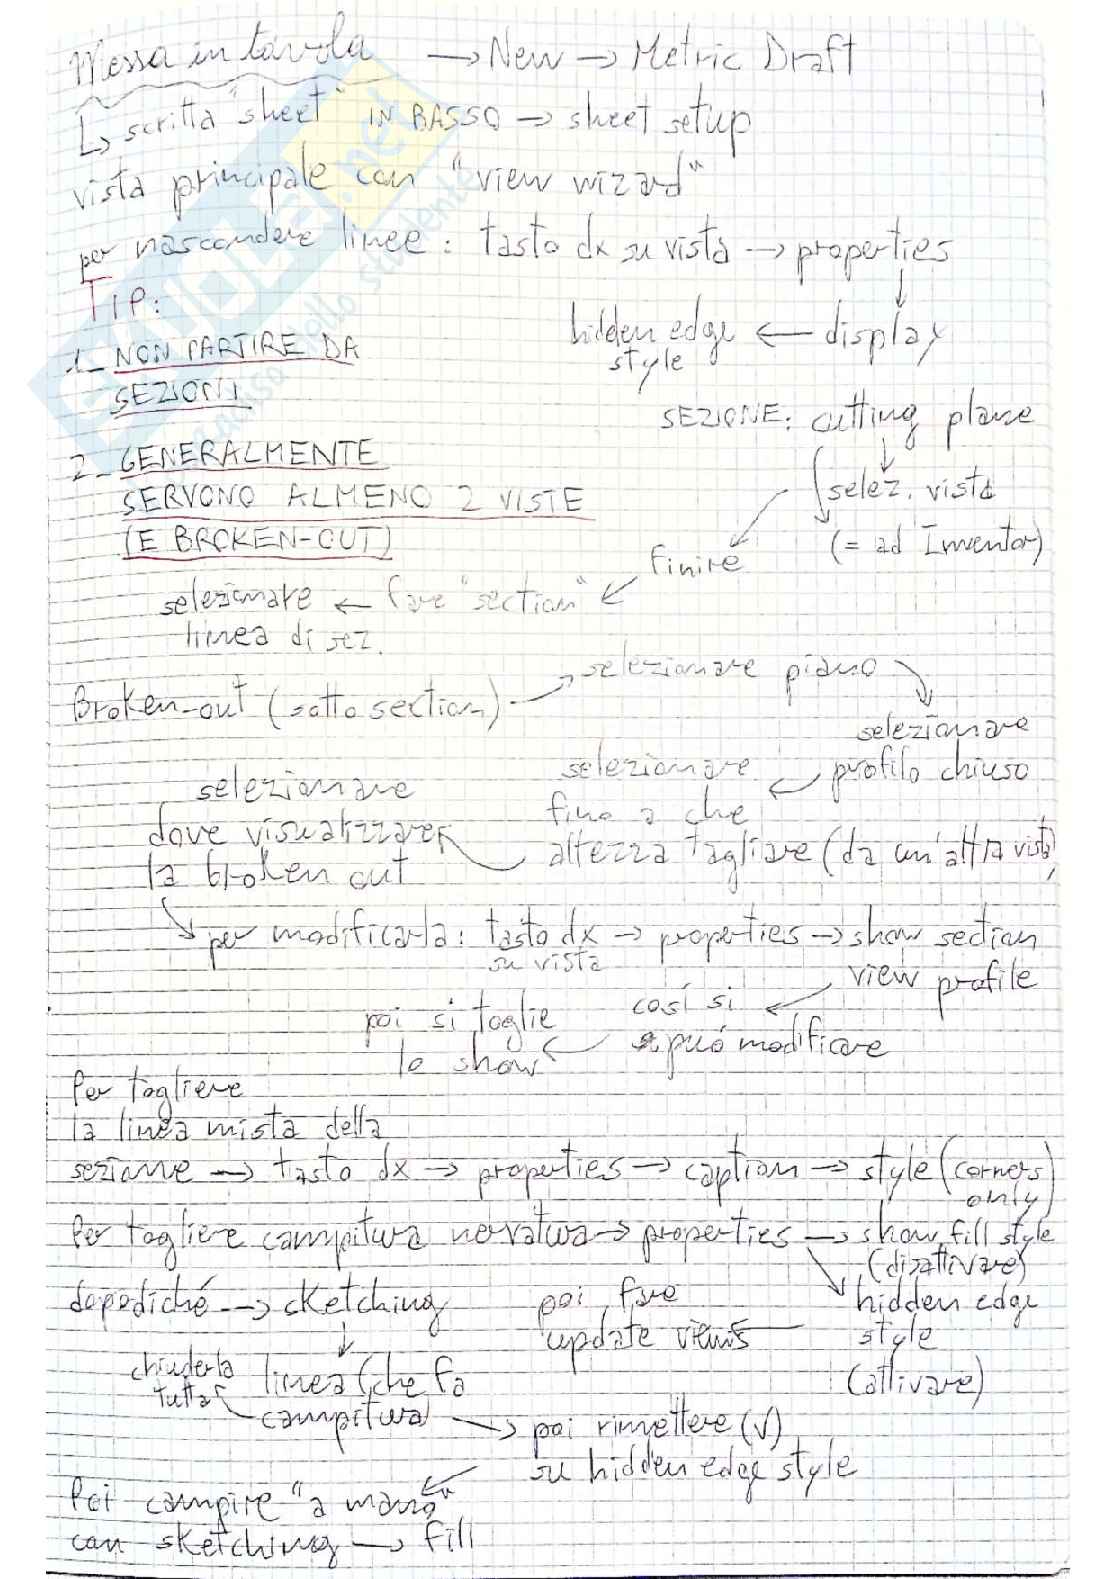 Messa in tavola → New → Metric Draft
↳ scritta "sheet" IN BASSO → sheet setup
vista principale con "view wizard"
per nascondere linee: tasto dx su vista → properties
TIP:
hidden edge ← display
style
1_ NON PARTIRE DA
SEZIONI
SEZIONE: cutting plane
2_ GENERALMENTE
SERVONO ALMENO 2 VISTE
selez. vista
(E BROKEN-OUT)
(= ad Inventor)
finire
selezionare ← fare "section"
linea di sez.
Broken-out (sotto section) → selezionare piano
selezionare
profilo chiuso
selezionare
fino a che
altezza tagliare (da un'altra vista)
selezionare
dove visualizzare
la broken out
per modificarla: tasto dx → properties → show section
su vista
view profile
così si
può modificare
poi si toglie
lo show
Per togliere
la linea mista della
sezione → tasto dx → properties → caption → style (corners
only)
Per togliere campitura nervatura → properties → show fill style
(disattivare)
hidden edge
style
(attivare)
poi fare
update views
dopodiché → sketching
linea (che fa
campitura)
chiuderla
tutta
→ poi rimettere (√)
su hidden edge style
Poi campire "a mano"
con sketching → fill
SKUOLA.net